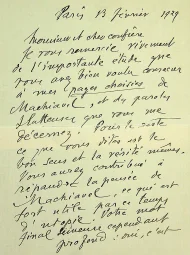 Paris 13 février 1929
Monsieur et cher confrère
Je vous remercie vivement
de l'importante étude que
vous avez bien voulu consacrer
à mes pages choisies de
Machiavel, et des paroles
que vous me
décernez. Pour le reste
ce que vous dites est le
bon sens et la vérité mêmes.
Vous aurez contribué à
répandre la pensée de
Machiavel, ce qui est
fort utile par ce temps
d'utopie. Votre mot
final cependant
profond : oui, c'est